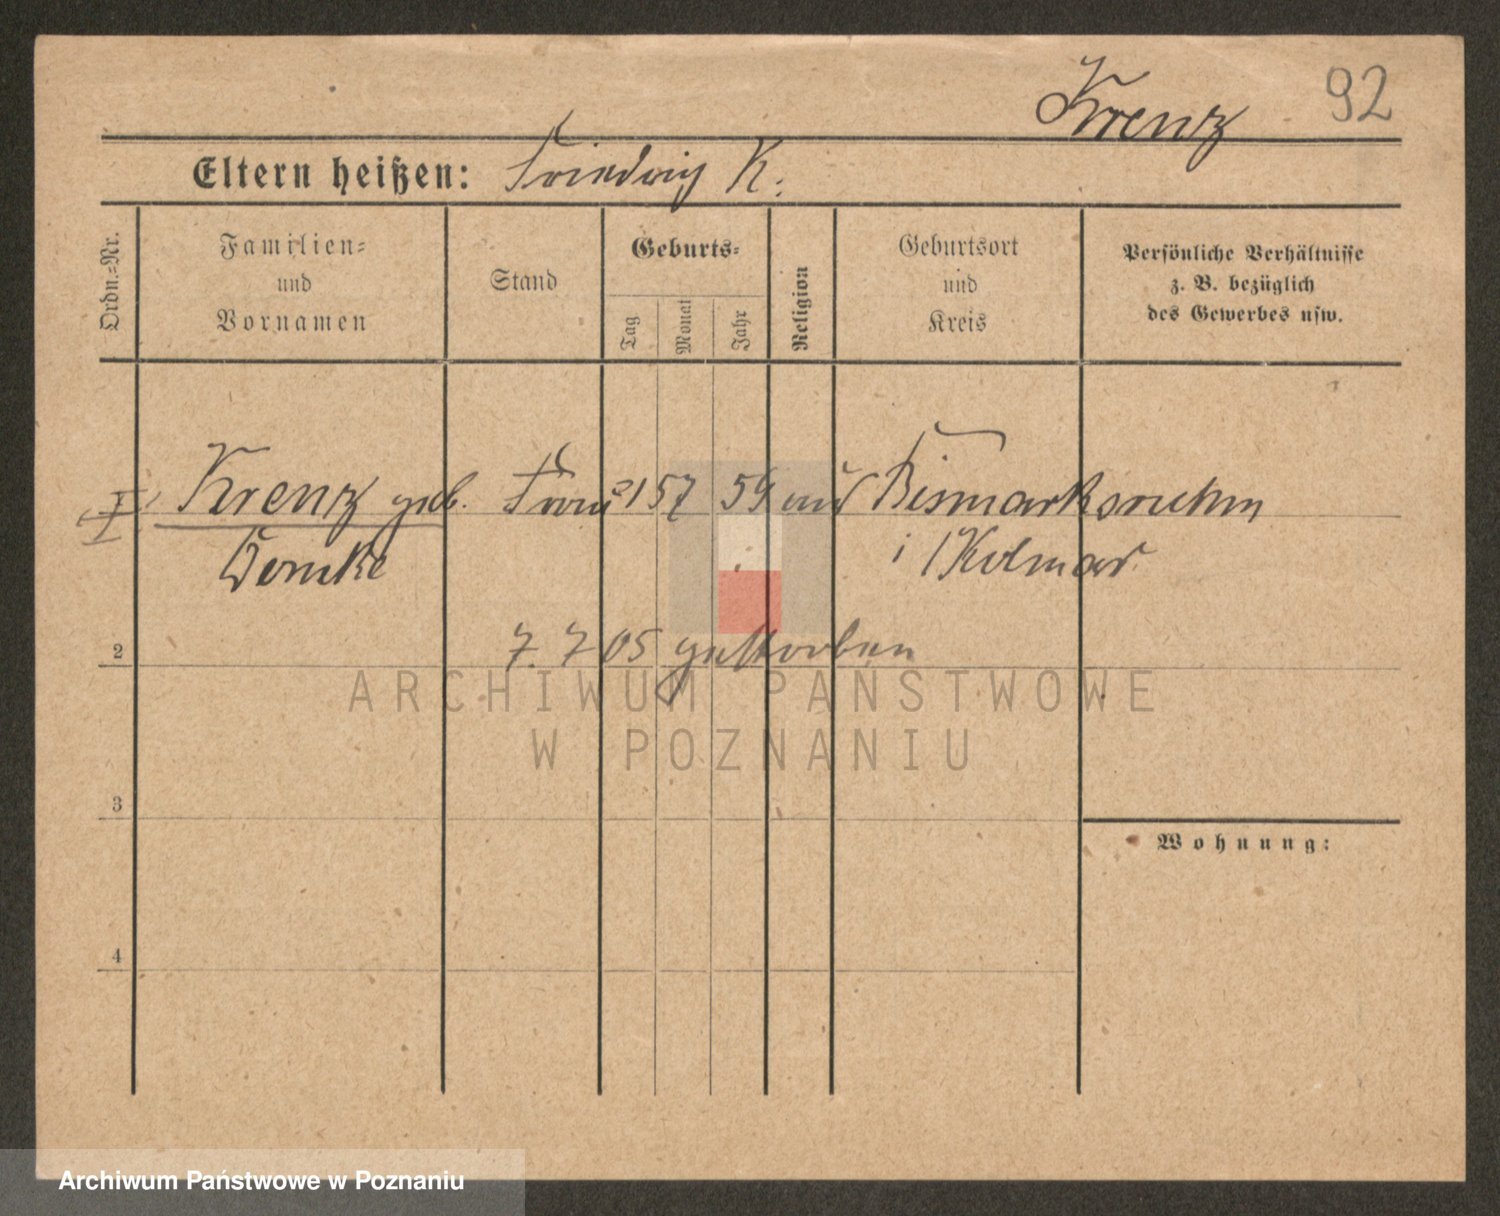 Krenz 92
Eltern heißen: Friedrich K.
Ordn.=Nr.
Familien=
und
Vornamen
Stand
Geburts=
Tag
Monat
Jahr
Religion
Geburtsort
und
Kreis
Persönliche Verhältnisse
z. B. bezüglich
des Gewerbes usw.
I Krenz geb. Frau 59 Bismarksruhm
i Kolmar
2 7. 7 05 gestorben
ARCHIWUM PAŃSTWOWE
W POZNANIU
3
Wohnung:
4
Archiwum Państwowe w Poznaniu